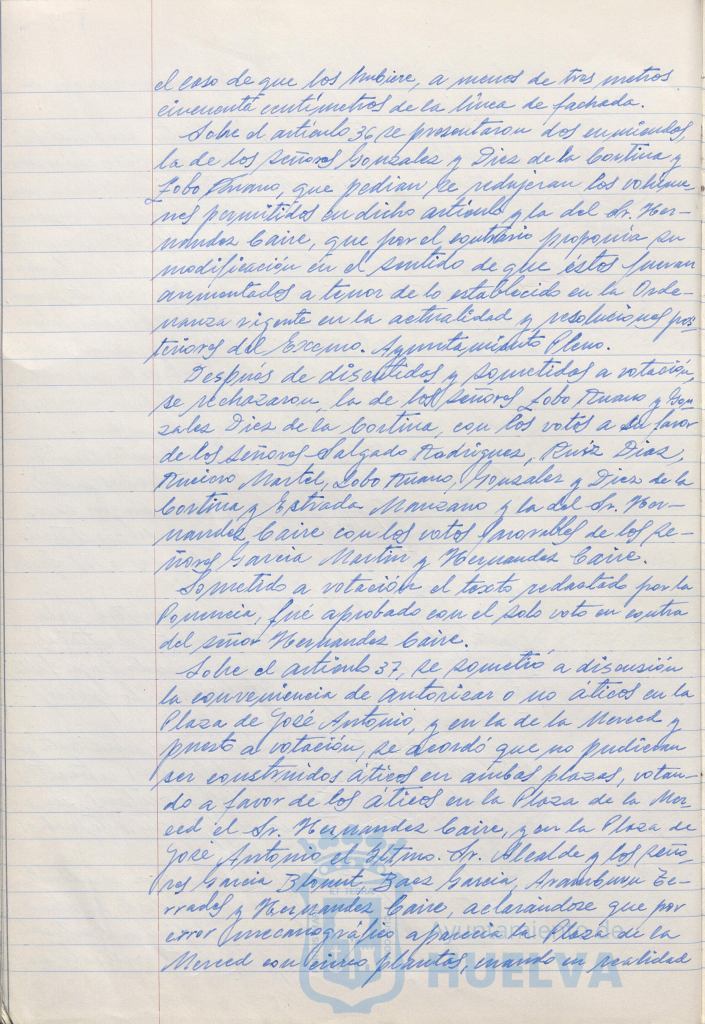 el caso de que los hubiere, a menos de tres metros
cincuenta centímetros de la línea de fachada.
Sobre el artículo 36 se presentaron dos enmiendas,
la de los señores Gonzalez y Diez de la Cortina y
Lobo Ruano, que pedian se redujeran los volúme-
nes permitidos en dicho artículo y la del Sr. Her-
nandez Caire, que por el contrario proponía su
modificación en el sentido de que éstos fueran
aumentados a tenor de lo establecido en la Orde-
nanza vigente en la actualidad y resoluciones pos-
teriores del Excmo. Ayuntamiento Pleno.
Después de discutidas y sometidas a votación,
se rechazaron, la de los señores Lobo Ruano y Gon-
zalez Diez de la Cortina, con los votos a su favor
de los señores Salgado Rodríguez, Ruiz Diaz,
Martel, Lobo Ruano, Gonzalez y Diez de la
Cortina y Estrada Manzano y la del Sr. Her-
nandez Caire con los votos favorables de los se-
ñores Garcia Martin y Hernandez Caire.
Sometido a votación el texto redactado por la
Ponencia, fué aprobado con el solo voto en contra
del señor Hernandez Caire.
Sobre el artículo 37, se sometió a discusión
la conveniencia de autorizar o no áticos en la
Plaza de José Antonio, y en la de la Merced y
puesto a votación, se acordó que no pudieran
ser construidos áticos en ambas plazas, votan-
do a favor de los áticos en la Plaza de la Mer-
ced el Sr. Hernandez Caire, y en la Plaza de
José Antonio el Iltmo. Sr. Alcalde y los seño-
res Garcia Baez Garcia, Aramburu
y Hernandez Caire, aclarándose que por
error mecanográfico aparecía la Plaza de la
Merced con cinco plantas, cuando en realidad
Ayuntamiento de
HUELVA